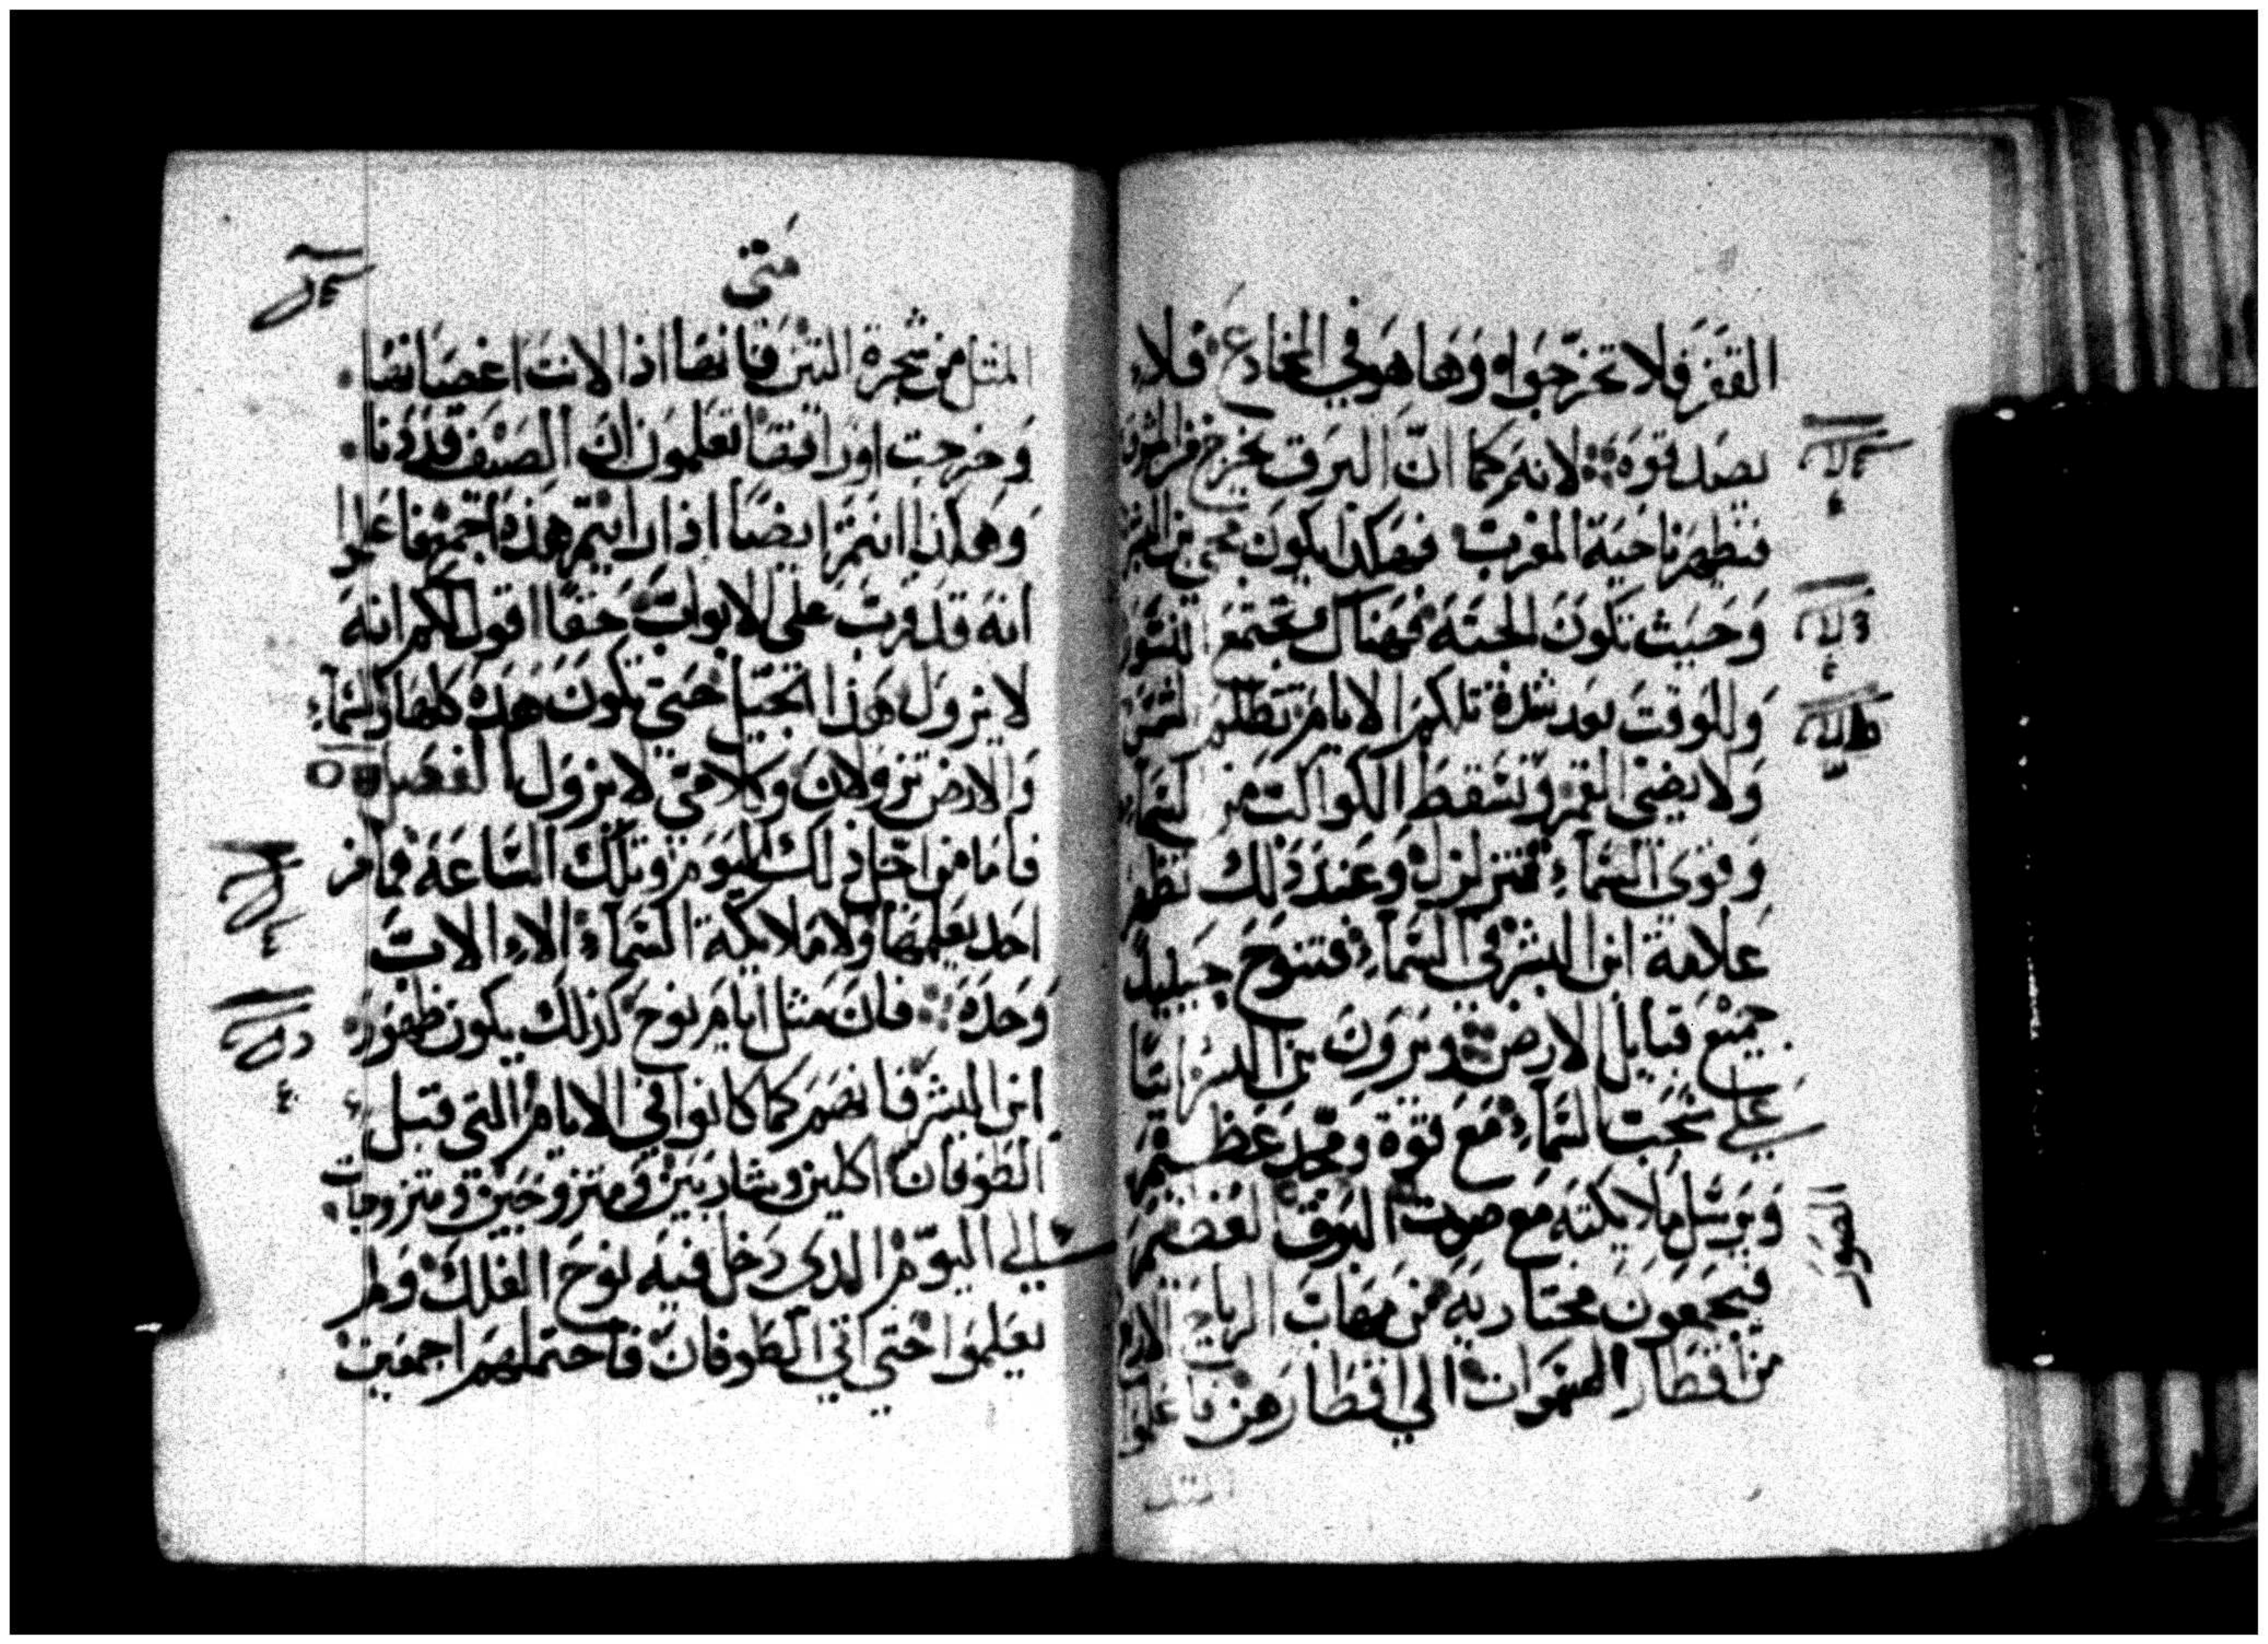 القفز فلا تخرجوا وها هو في المخادع فلا
يصدقوه لانه كما ان البرق يخرج من المشرق
فيظهر ناحية المغرب فهكذا يكون مجي ابن البشر
وحيث تكون الجثة فهناك تجتمع النسور
وللوقت بعد شدة تلكم الايام تظلم الشمس
ولا يضي القمر وتسقط الكواكب من السماء
وقوى السماء تتزلزل وعند ذلك تظهر
علامة ابن البشر في السماء فتنوح حينيذ
جميع قبايل الارض ويرون ابن البشر اتيا
على سحب السماء مع قوة ومجد عظيم
ويرسل ملايكته مع صوت البوق العظيم
فيجمعون مختاريه من مهاب الرياح الاربع
من اقطار السموات الى اقطارهن فاعلموا
الصور
متى
المثل من شجرة التين فانها اذا لانت اغصانها
وخرجت اوراقها تعلمون ان الصيف قد دنا
وهكذا انتم ايضا اذا رايتم هذه اجمع فاعلموا
انه قد قرب على الابواب حقا اقول لكم انه
لا يزول هذا الجيل حتى تكون هذه كلها السماء
والارض تزولان وكلامي لا يزول الفصل
فاما من اجل ذلك اليوم وتلك الساعة فما من
احد يعلمها ولا ملايكة السماء الا الاب
وحده فان مثل ايام نوح كذلك يكون ظهور
ابن البشر فانهم كما كانوا في الايام التي قبل
الطوفان اكلين وشاربين ومتزوجين ومتزوجات
الى اليوم الذى دخل فيه نوح الفلك ولم
يعلموا حتى اتى الطوفان فاحتملهم اجمعين